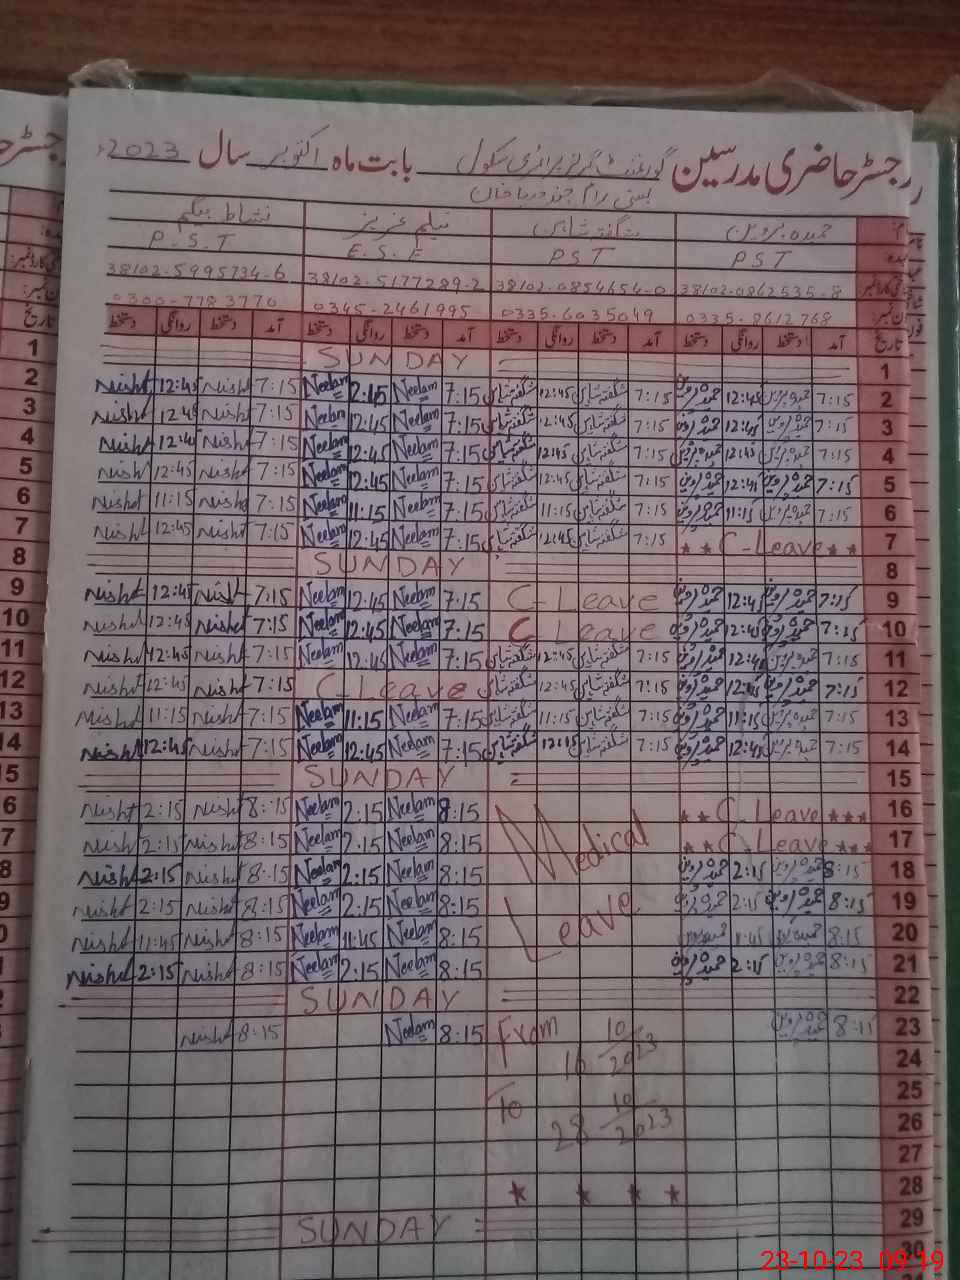 رجسٹر حاضری مدرسین گورنمنٹ گرلز پرائمری سکول بابت ماہ اکتوبر سال 2023ء
بستی رام چند دریا خان
حمیدہ پروین شگفتہ شاہین نیلم عزیز نشاط بیگم
PST PST E.S.E P.S.T
38102-0862535-8 38102-0854654-0 38102-5177289-2 38102-5995734-6
0335-8612768 0335-6035049 0345-2461995 0300-7783770
تاریخ آمد دستخط روانگی دستخط آمد دستخط روانگی دستخط آمد دستخط روانگی دستخط آمد دستخط روانگی دستخط تاریخ
1 SUNDAY 1
2 7:15 حمیدہ پروین 12:45 حمیدہ پروین 7:15 شگفتہ شاہین 12:45 شگفتہ شاہین 7:15 Neelam 12:45 Neelam 7:15 Nisht 12:45 Nisht 2
3 7:15 حمیدہ پروین 12:45 حمیدہ پروین 7:15 شگفتہ شاہین 12:45 شگفتہ شاہین 7:15 Neelam 12:45 Neelam 7:15 Nisht 12:45 Nisht 3
4 7:15 حمیدہ پروین 12:45 حمیدہ پروین 7:15 شگفتہ شاہین 12:45 شگفتہ شاہین 7:15 Neelam 12:45 Neelam 7:15 Nisht 12:45 Nisht 4
5 7:15 حمیدہ پروین 12:45 حمیدہ پروین 7:15 شگفتہ شاہین 12:45 شگفتہ شاہین 7:15 Neelam 12:45 Neelam 7:15 Nisht 12:45 Nisht 5
6 7:15 حمیدہ پروین 11:15 حمیدہ پروین 7:15 شگفتہ شاہین 11:15 شگفتہ شاہین 7:15 Neelam 11:15 Neelam 7:15 Nisht 11:15 Nisht 6
7 C-Leave 7:15 شگفتہ شاہین 12:45 شگفتہ شاہین 7:15 Neelam 12:45 Neelam 7:15 Nisht 12:45 Nisht 7
8 SUNDAY 8
9 7:15 حمیدہ پروین 12:45 حمیدہ پروین C-Leave 7:15 Neelam 12:45 Neelam 7:15 Nisht 12:45 Nisht 9
10 7:15 حمیدہ پروین 12:45 حمیدہ پروین C Leave 7:15 Neelam 12:45 Neelam 7:15 Nisht 12:45 Nisht 10
11 7:15 حمیدہ پروین 12:45 حمیدہ پروین 7:15 شگفتہ شاہین 12:45 شگفتہ شاہین 7:15 Neelam 12:45 Neelam 7:15 Nisht 12:45 Nisht 11
12 7:15 حمیدہ پروین 12:45 حمیدہ پروین 7:15 شگفتہ شاہین 12:45 شگفتہ شاہین C-Leave 7:15 Nisht 12:45 Nisht 12
13 7:15 حمیدہ پروین 11:15 حمیدہ پروین 7:15 شگفتہ شاہین 11:15 شگفتہ شاہین 7:15 Neelam 11:15 Neelam 7:15 Nisht 11:15 Nisht 13
14 7:15 حمیدہ پروین 12:45 حمیدہ پروین 7:15 شگفتہ شاہین 12:15 شگفتہ شاہین 7:15 Neelam 12:45 Neelam 7:15 Nisht 12:45 Nisht 14
15 SUNDAY 15
16 C-Leave Medical 8:15 Neelam 2:15 Neelam 8:15 Nisht 2:15 Nisht 6
17 C-Leave 8:15 Neelam 2:15 Neelam 8:15 Nisht 2:15 Nisht 7
18 8:15 حمیدہ پروین 2:15 حمیدہ پروین Leave 8:15 Neelam 2:15 Neelam 8:15 Nisht 2:15 Nisht 8
19 8:15 حمیدہ پروین 2:15 حمیدہ پروین 8:15 Neelam 2:15 Neelam 8:15 Nisht 2:15 Nisht 9
20 8:15 حمیدہ پروین 11:45 حمیدہ پروین 8:15 Neelam 11:45 Neelam 8:15 Nisht 11:45 Nisht 0
21 8:15 حمیدہ پروین 2:15 حمیدہ پروین 8:15 Neelam 2:15 Neelam 8:15 Nisht 2:15 Nisht 1
22 SUNDAY
23 8:15 حمیدہ پروین From 16 10/2023 8:15 Neelam 8:15 Nisht
24
25
26 To 28 10/2023
27
28
29 SUNDAY
30
23-10-23 09:19